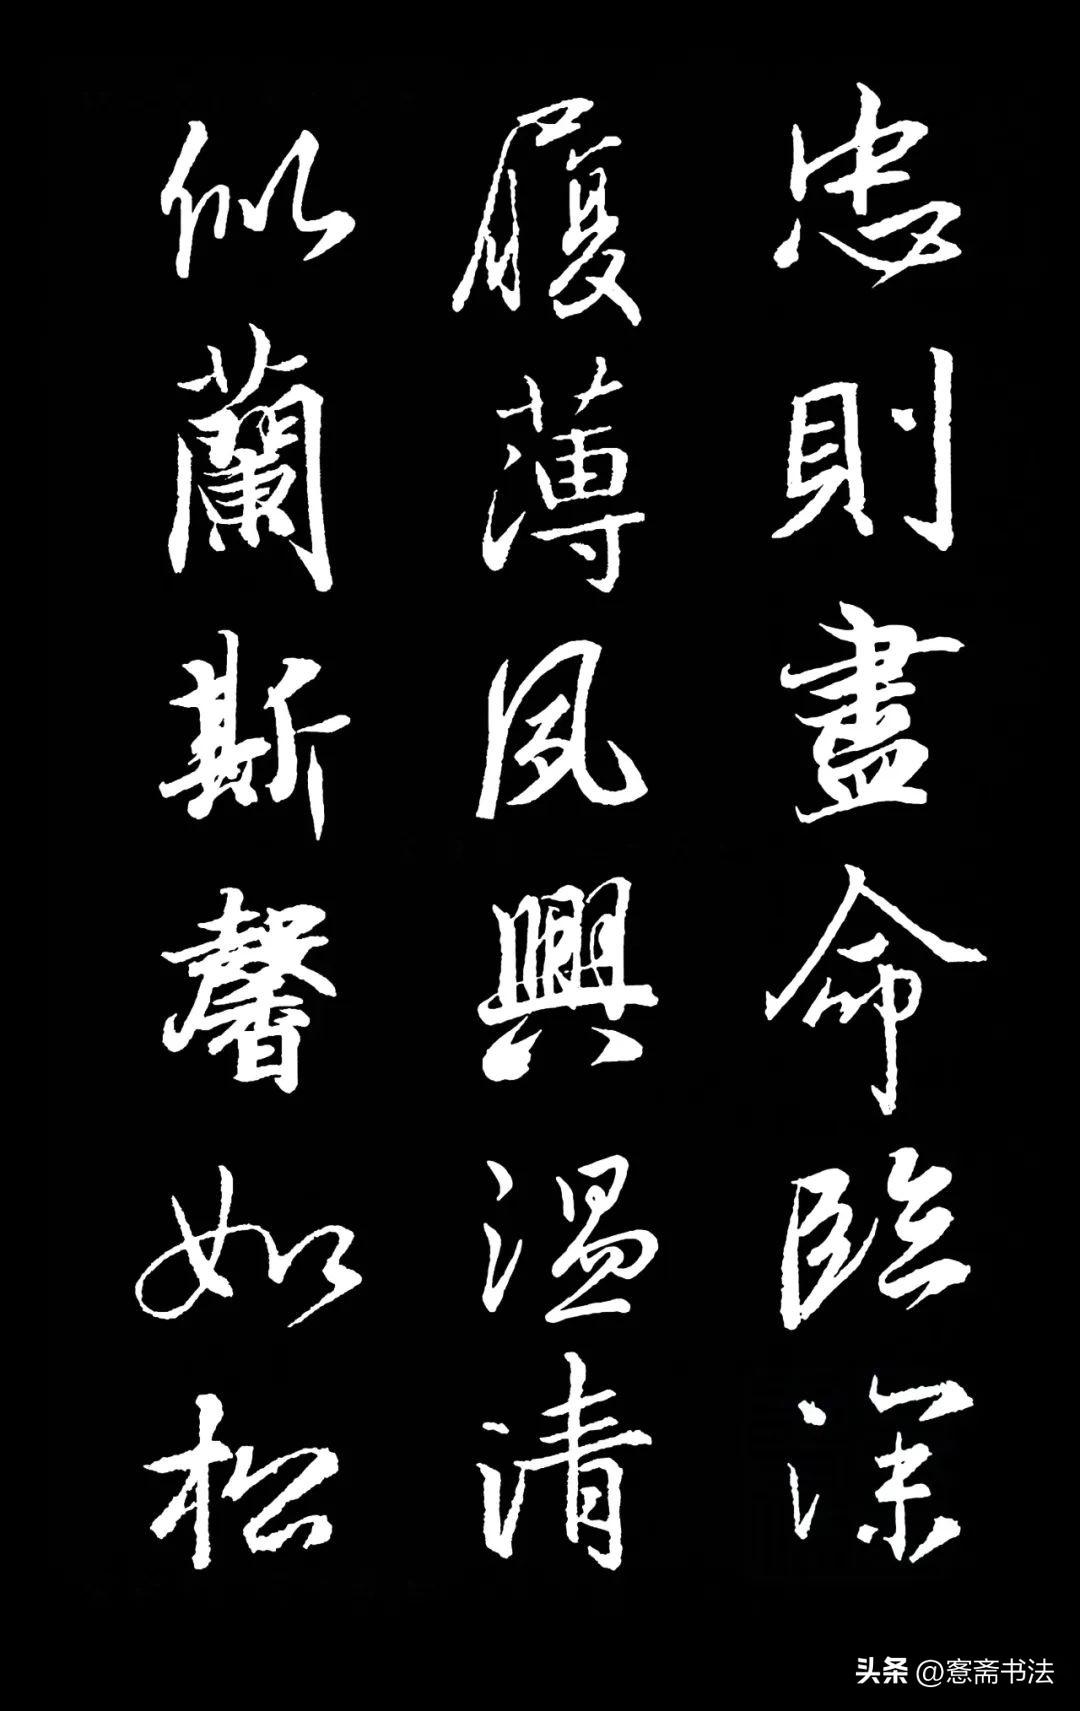 忠則盡命臨深
履薄夙興温清
似蘭斯馨如松
头条 @愙斋书法